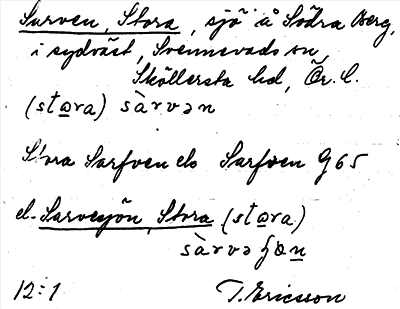 Sarven, Stora, sjö å Södra Berg,
i sydväst, Svennevads sn,
Sköllersta hd, Ör. l.
(sto̲ra) sàrvən
Stora Sarfven els Sarfven G65
el. Sarvesjön, Stora (sto̲ra)
sàrvə
12:1 T. Ericsson